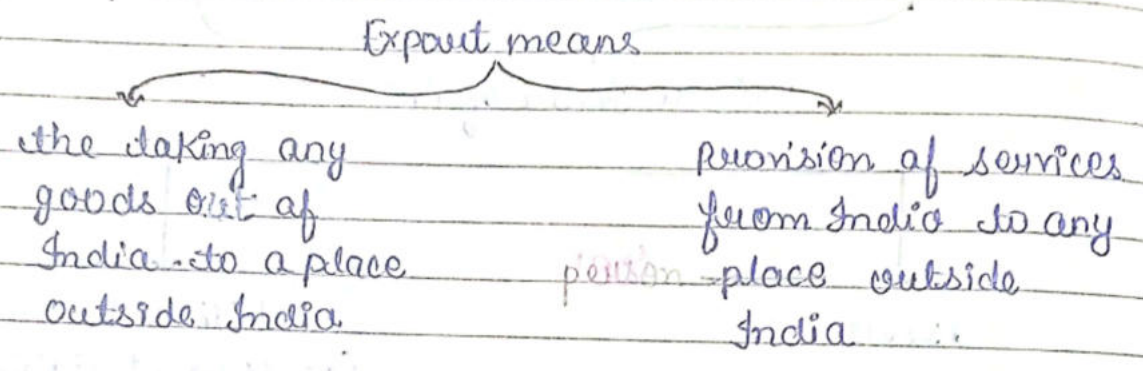 Export means
the taking any
goods out of
India to a place
outside India
provision of services
from India to any
person place outside
India